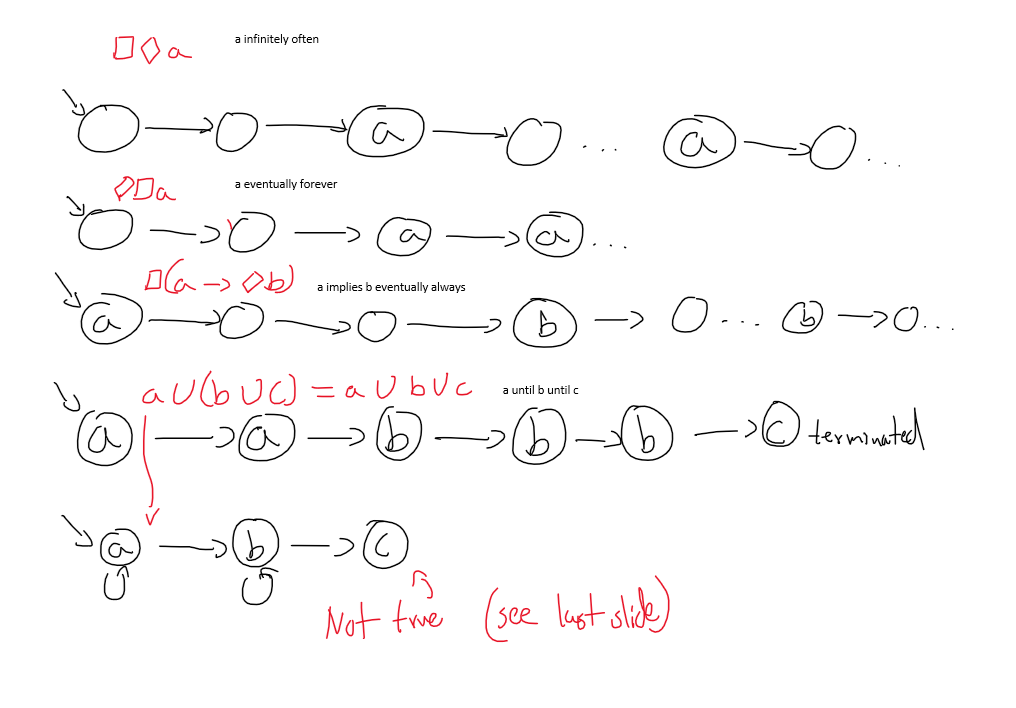 □◇a a infinitely often
a ... a ...
◇□a a eventually forever
a a ...
□(a → ◇b) a implies b eventually always
a b ... b ...
a U (b U c) = a U b U c a until b until c
a a b b b c terminated
a b c
Not true (see last slide)